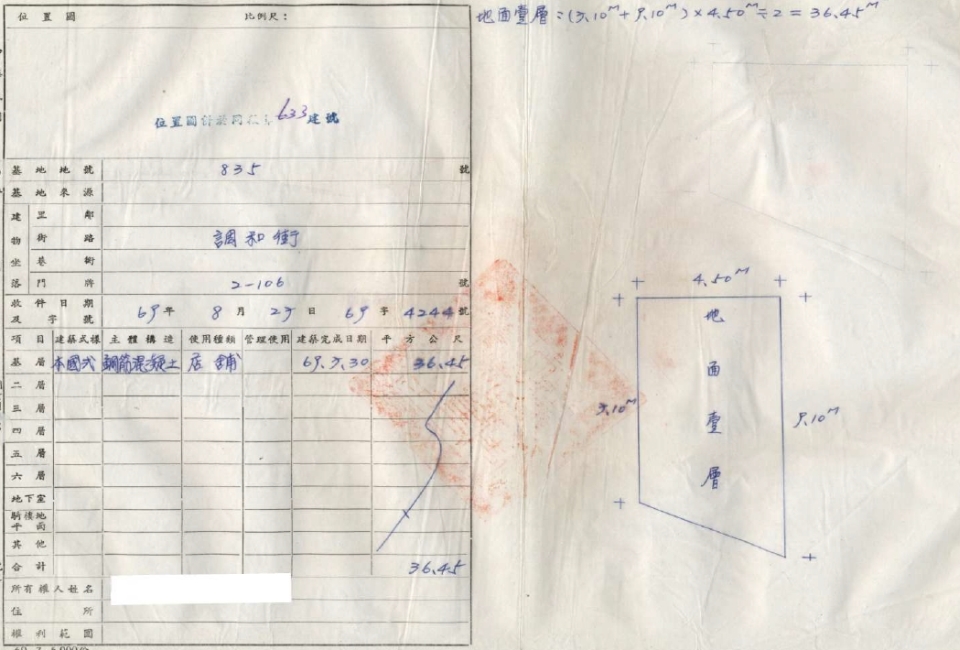 位置圖 比例尺：
位置圖併於同段 633 建號
基地地號 835 號
基地來源
建物坐落
里鄰
街路 調和街
巷衖
門牌 2-106 號
收件日期及字號 69年 8月 27日 69字 4244號
項目 建築式樣 主體構造 使用種類 管理使用 建築完成日期 平方公尺
基層 本國式 鋼筋混凝土 店舖 69.7.30 36.45
二層
三層
四層
五層
六層
地下室
騎樓地平面
其他
合計 36.45
所有權人姓名
住所
權利範圍
地面壹層：(7.10M+9.10M)×4.50M÷2=36.45M
4.50M
地面壹層
7.10M
9.10M